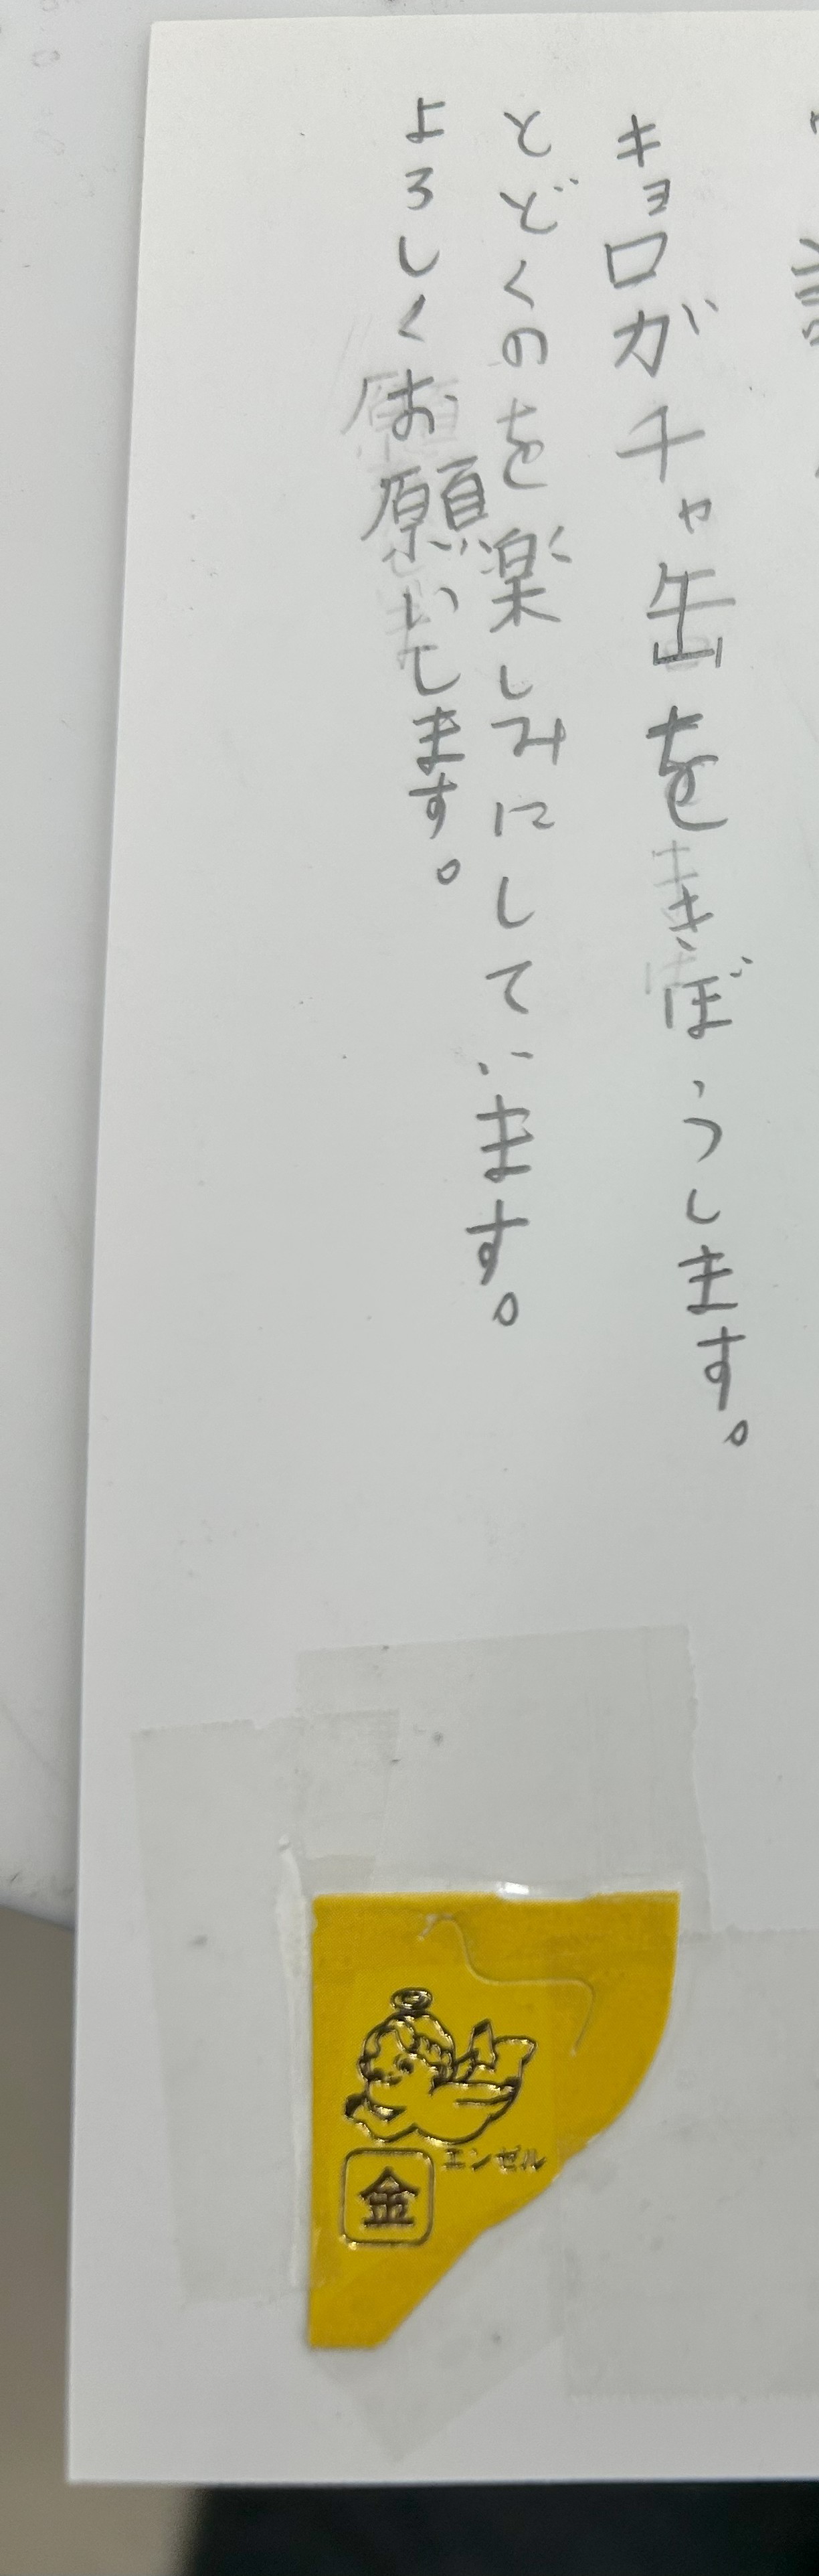 キョロガチャ缶をきぼうします。
とどくのを楽しみにしています。
よろしくお願いします。
エンゼル
金